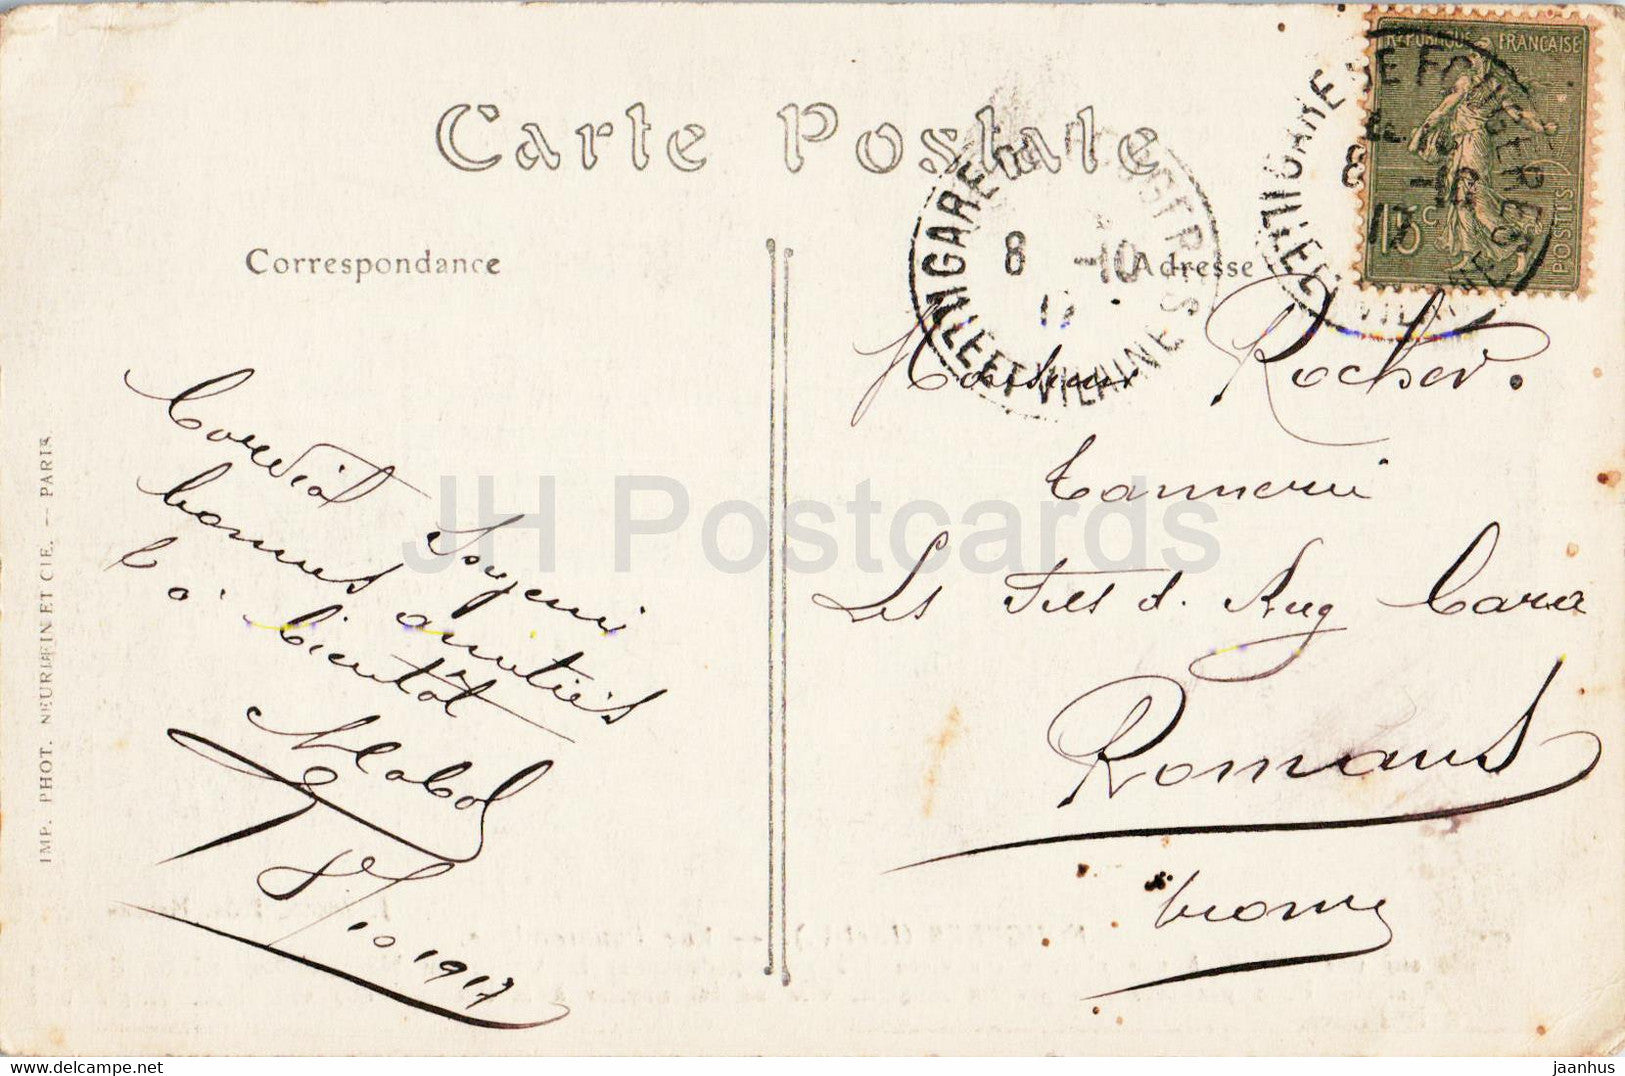 Carte Postale
Correspondance
Adresse
RÉPUBLIQUE FRANÇAISE
15c
POSTES
GARE DE FOUGERES
8 -10
17
ILLE ET VILAINE
GARE DE FOUGERES
8 -10
17
ILLE ET VILAINE
Cordial Souvenir
bonnes amitiés
à bientôt
8/10 1917
Monsieur Rocher.
Tannerie
Les Fils d. Aug
Romans
Drome
IMP. PHOT. NEURDEIN ET CIE. — PARIS
JH Postcards
jaanhus @ www.delcampe.net